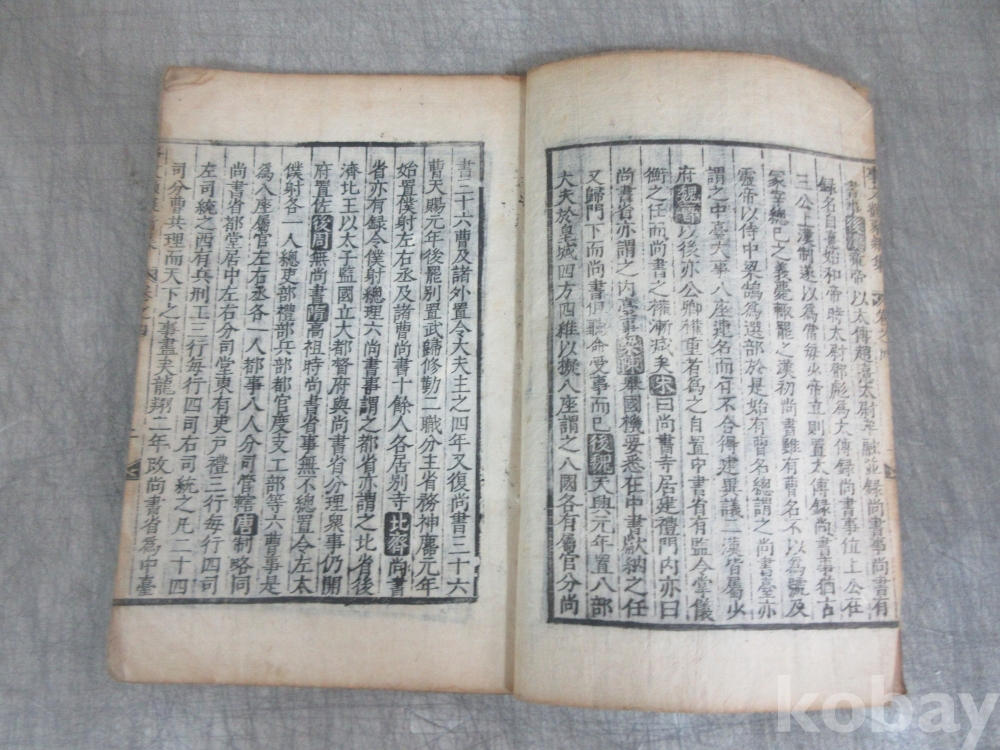 書 後漢章帝以太傅趙憙太尉牟融並錄尚書事尚書有
錄名自憙始和帝時太尉鄧彪為太傅錄尚書事位上公在
三公上漢制遂以為常每少帝立則置太傅錄尚書事猶古
冢宰總已之義薨輒罷之漢初尚書雖有曹名不以為號及
靈帝以侍中梁鵠為選部於是始有曹名總謂之尚書臺亦
謂之中臺大事八座連名而有不合得建異議二漢皆屬少
府魏晉以後亦公卿權重者為之自置中書省有監令掌儀
衡之任而尚書之權漸減矣宋曰尚書寺居建禮門內亦曰
尚書省亦謂之內臺事梁陳舉國機要悉在中書獻納之任
又歸門下而尚書但聽命受事而已後魏天興元年置八部
大夫於皇城四方四維以擬八座謂之八國各有屬官分尚
書三十六曹及諸外置令大夫主之四年又復尚書三十六
曹天賜元年後罷別置武歸修勤二職分主省務神䴥元年
始置僕射左右丞及諸曹尚書十餘人各居別寺北齊尚書
省亦有錄令僕射總理六尚書事謂之都省亦謂之北省後
濟北王以太子監國立大都督府與尚書省分理眾事仍開
府置佐後周無尚書隋高祖時尚書省事無不總置令左太
僕射各一人總吏部禮部兵部都官度支工部等六曹事是
為八座屬官左右丞各一人都事八人分司管轄唐制略同
尚書省都堂居中左右分司堂東有吏戶禮三行每行四司
左司統之西有兵刑工三行每行四司右司統之凡二十四
司分曹共理而天下之事盡矣龍翔二年改尚書省為中臺
kobay